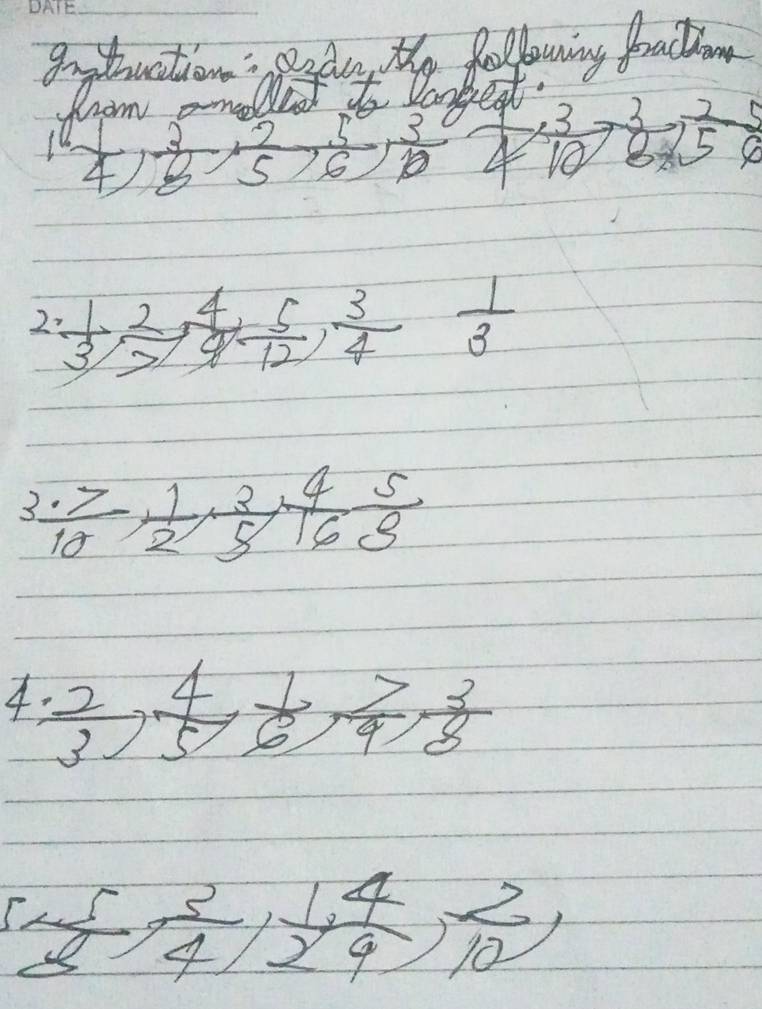 DATE
Instructions: Order the following fractions
from smallest to largest.
1. 1/4, 3/8, 2/5, 5/6, 3/10 1/4, 3/10, 3/8, 2/5 5/6
2. 1/3, 2/7, 4/9, 5/12, 3/4 1/3
3. 7/10, 1/2, 3/5, 4/16 5/8
4. 2/3, 4/5, 1/6, 7/9, 3/8
5. 5/8, 3/4, 1/2, 4/9, 7/10,